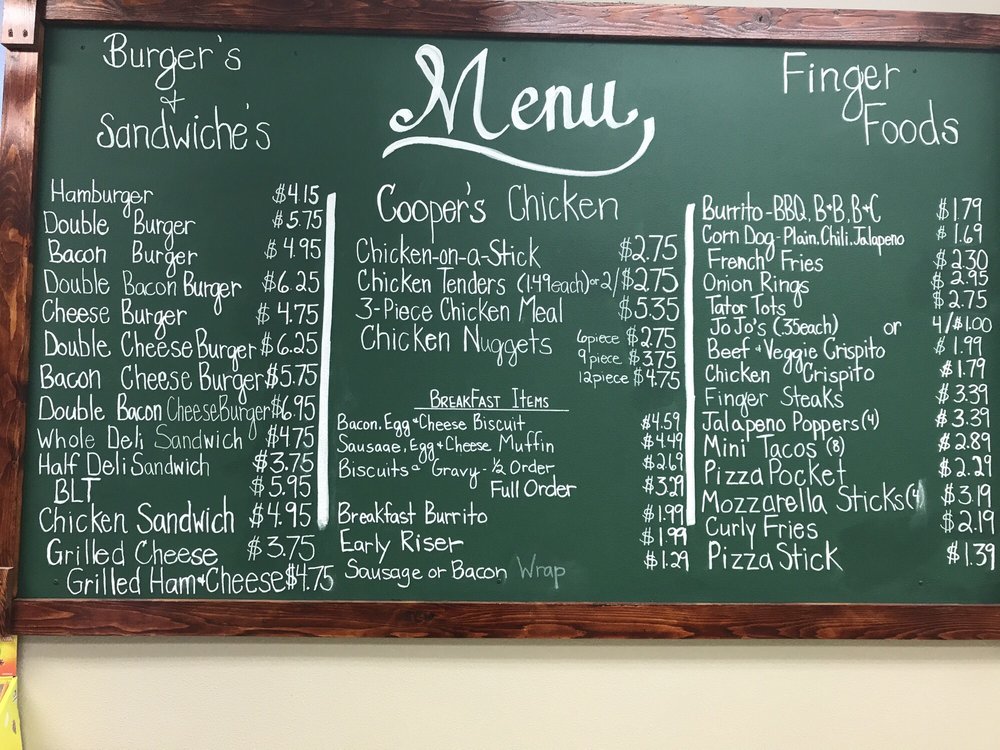 Menu
Burger's
&
Sandwiche's
Hamburger $4.15
Double Burger $5.75
Bacon Burger $4.95
Double Bacon Burger $6.25
Cheese Burger $4.75
Double Cheese Burger $6.25
Bacon Cheese Burger $5.75
Double Bacon Cheese Burger $6.95
Whole Deli Sandwich $4.75
Half Deli Sandwich $3.75
BLT $5.95
Chicken Sandwich $4.95
Grilled Cheese $3.75
Grilled Ham & Cheese $4.75
Cooper's Chicken
Chicken-on-a-Stick $2.75
Chicken Tenders (1.49 each) or 2/$2.75
3-Piece Chicken Meal $5.35
Chicken Nuggets 6 piece $2.75
9 piece $3.75
12 piece $4.75
Breakfast Items
Bacon, Egg & Cheese Biscuit $4.59
Sausage, Egg & Cheese Muffin $4.49
Biscuits & Gravy - ½ Order $2.69
Full Order $3.29
Breakfast Burrito $1.99
Early Riser $1.99
Sausage or Bacon Wrap $1.29
Finger
Foods
Burrito - BBQ, B&B, B&C $1.79
Corn Dog - Plain, Chili, Jalapeno $1.69
French Fries $2.30
Onion Rings $2.95
Tator Tots $2.75
JoJo's (35 each) or 4/$1.00
Beef & Veggie Crispito $1.99
Chicken Crispito $1.79
Finger Steaks $3.39
Jalapeno Poppers (4) $3.39
Mini Tacos (8) $2.89
Pizza Pocket $2.29
Mozzarella Sticks (4) $3.19
Curly Fries $2.19
Pizza Stick $1.39